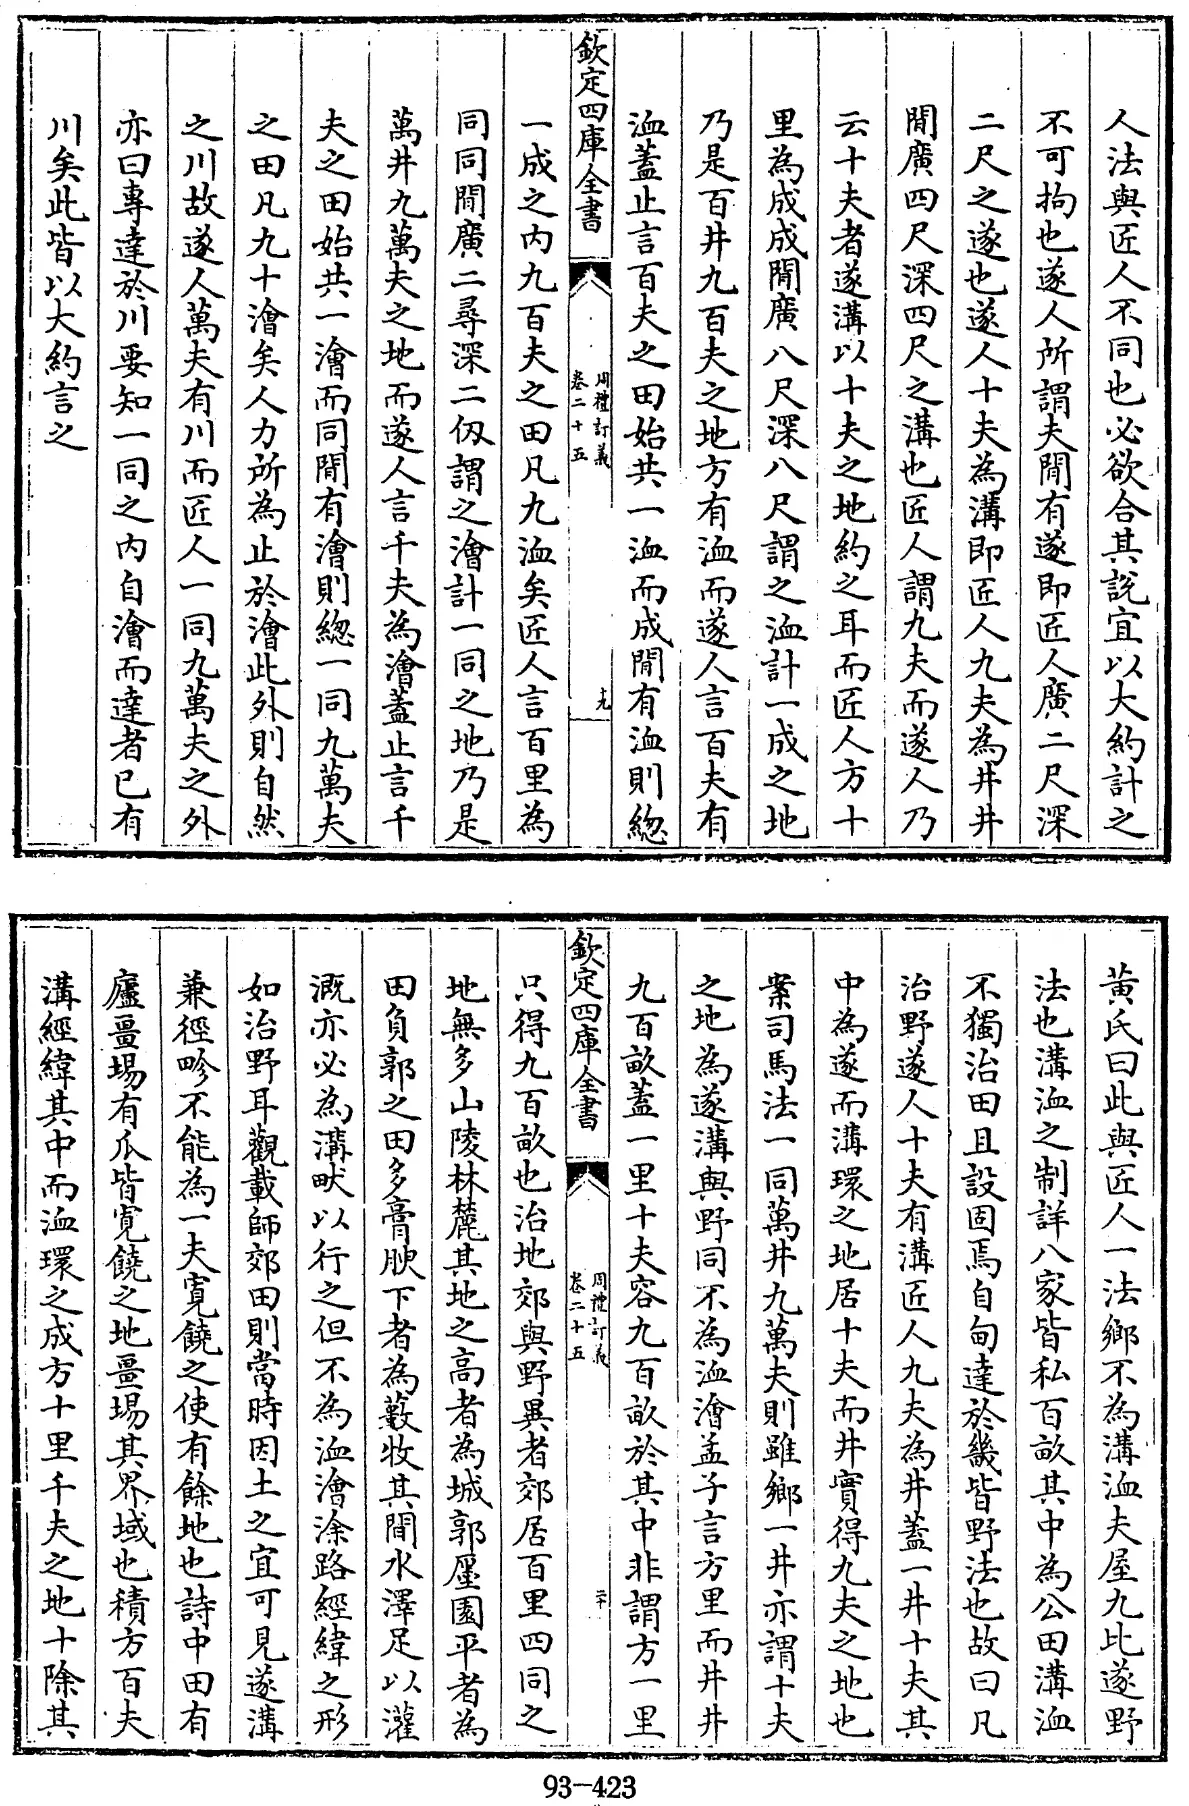 人法與匠人不同也必欲合其說宜以大約計之
不可拘也遂人所謂夫間有遂即匠人廣二尺深
二尺之遂也遂人十夫為溝即匠人九夫為井井
間廣四尺深四尺之溝也匠人謂九夫而遂人乃
云十夫者遂溝以十夫之地約之耳而匠人方十
里為成成間廣八尺深八尺謂之洫計一成之地
乃是百井九百夫之地方有洫而遂人言百夫有
洫蓋止言百夫之田始共一洫而成間有洫則總
欽定四庫全書
周禮訂義
卷二十五
十九
一成之內九百夫之田凡九洫矣匠人言百里為
同同間廣二尋深二仭謂之澮計一同之地乃是
萬井九萬夫之地而遂人言千夫為澮蓋止言千
夫之田始共一澮而同間有澮則總一同九萬夫
之田凡九十澮矣人力所為止於澮此外則自然
之川故遂人萬夫有川而匠人一同九萬夫之外
亦曰專達於川要知一同之內自澮而達者已有
川矣此皆以大約言之
黃氏曰此與匠人一法鄉不為溝洫夫屋九比遂野
法也溝洫之制詳八家皆私百畝其中為公田溝洫
不獨治田且設固焉自甸達於畿皆野法也故曰凡
治野遂人十夫有溝匠人九夫為井蓋一井十夫其
中為遂而溝環之地居十夫而井實得九夫之地也
案司馬法一同萬井九萬夫則雖鄉一井亦謂十夫
之地為遂溝與野同不為洫澮孟子言方里而井井
九百畝蓋一里十夫容九百畝於其中非謂方一里
欽定四庫全書
周禮訂義
卷二十五
二十
只得九百畝也治地郊與野異者郊居百里四同之
地無多山陵林麓其地之高者為城郭廛園平者為
田負郭之田多膏腴下者為藪牧其間水澤足以灌
溉亦必為溝畎以行之但不為洫澮涂路經緯之形
如治野耳觀載師郊田則當時因土之宜可見遂溝
兼徑畛不能為一夫寬饒之使有餘地也詩中田有
廬疆埸有瓜皆寬饒之地疆埸其界域也積方百夫
溝經緯其中而洫環之成方十里千夫之地十除其
93-423